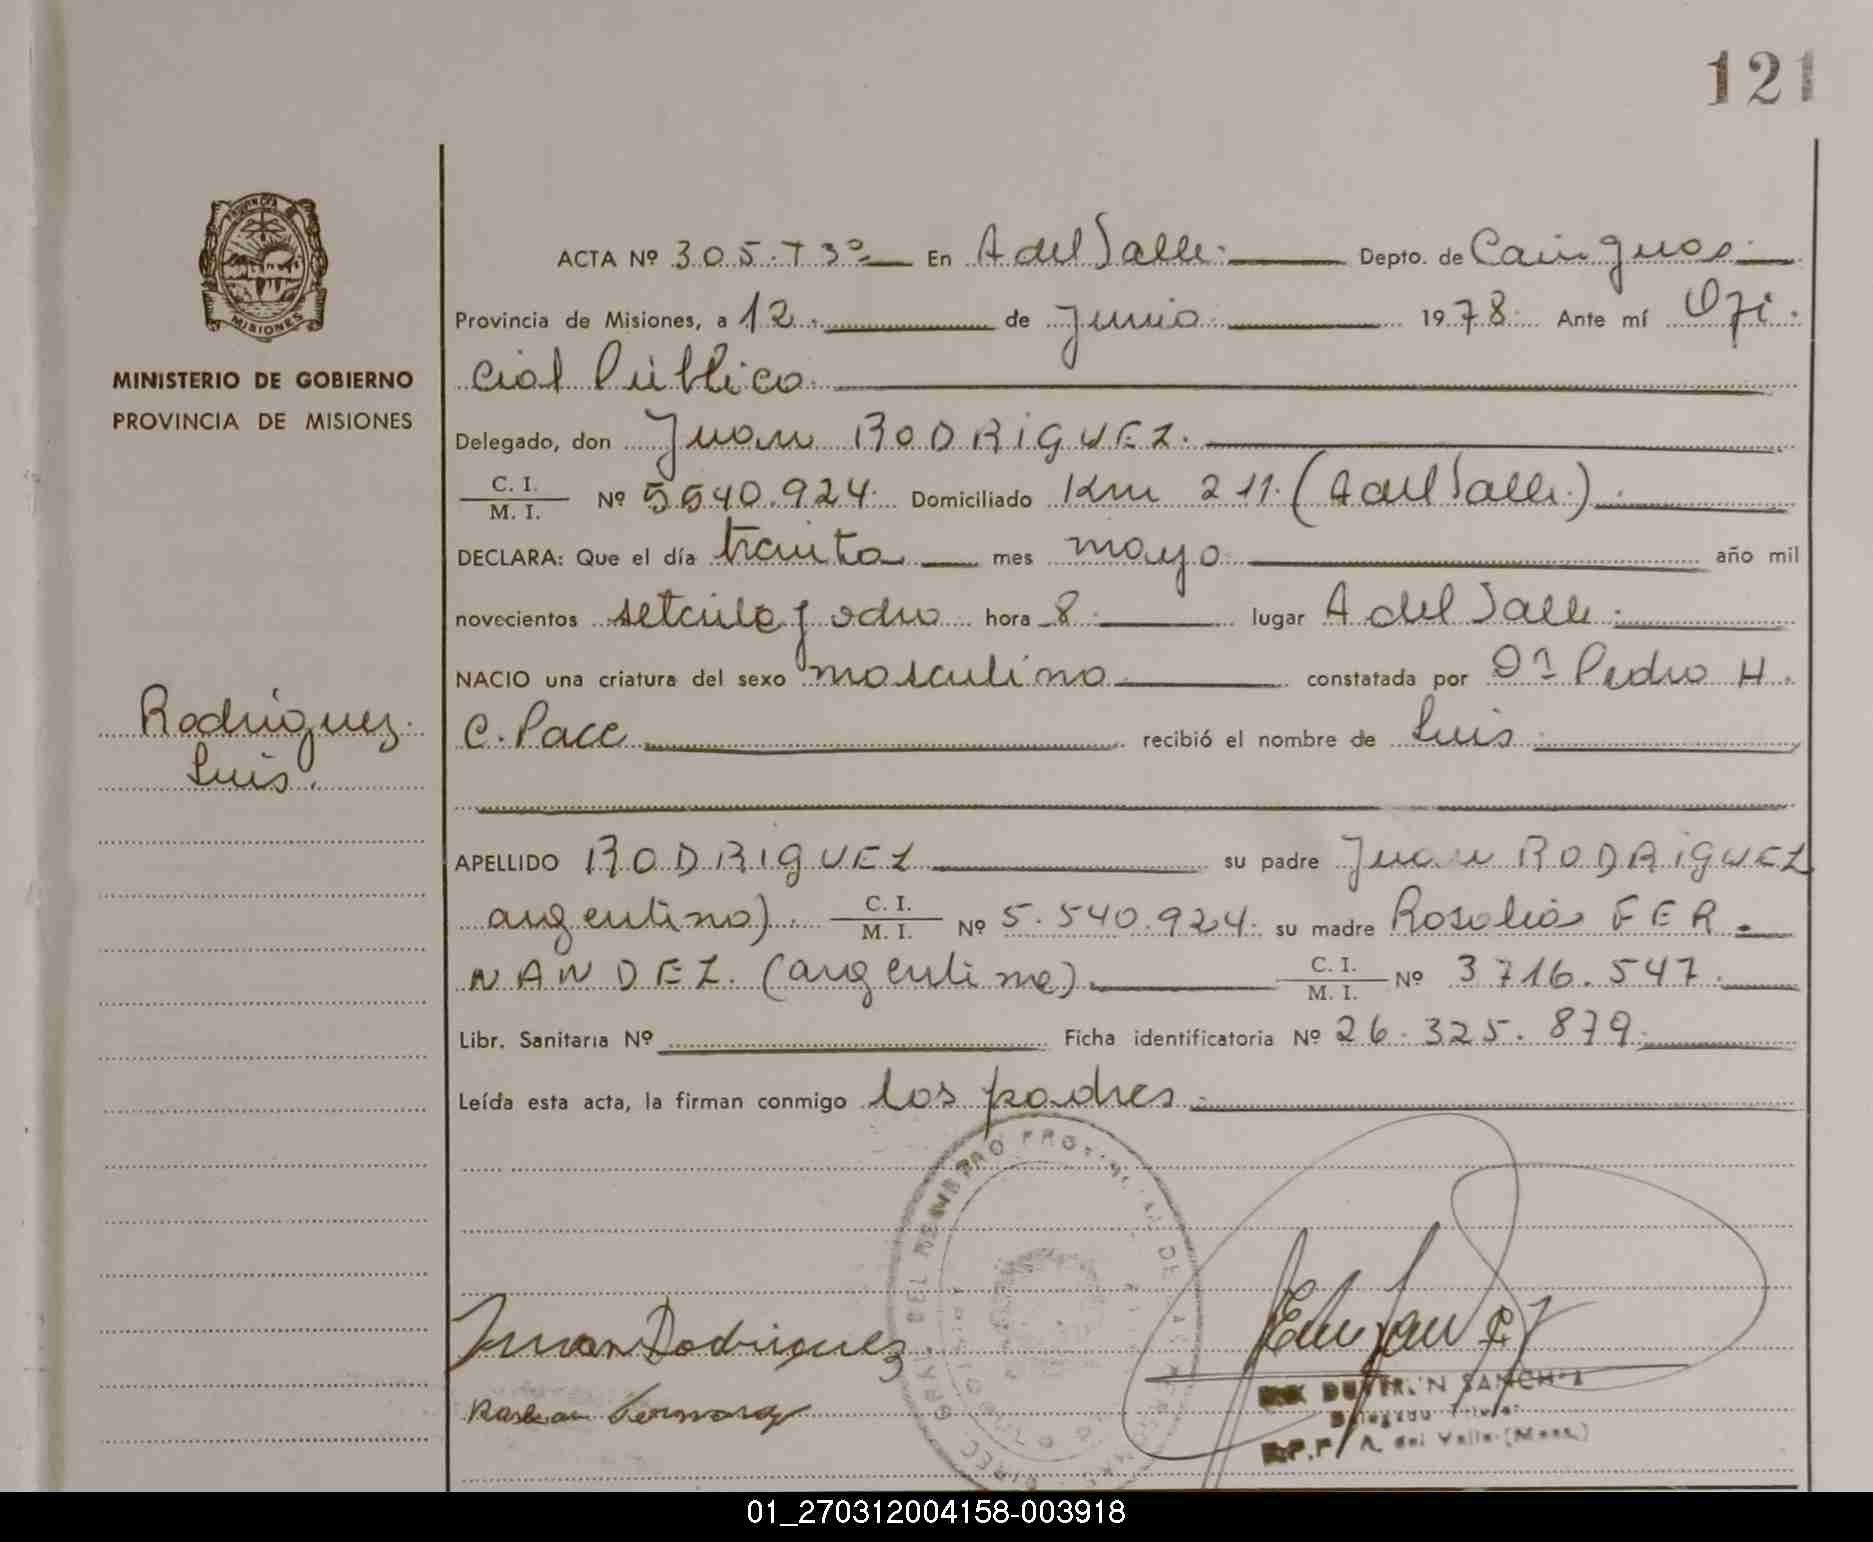 121
PROVINCIA DE
MISIONES
MINISTERIO DE GOBIERNO
PROVINCIA DE MISIONES
Rodriguez
Luis.
ACTA Nº 305. T 3º En A del Valle. Depto. de Cainguas.
Provincia de Misiones, a 12. de Junio. 1978. Ante mí Ofi.
cial Público.
Delegado, don Juan RODRIGUEZ.
C. I.
M. I. Nº 5540.924. Domiciliado Km 211. (A del Valle.).
DECLARA: Que el día treinta mes mayo año mil
novecientos setenta y ocho hora 8. lugar A del Valle.
NACIO una criatura del sexo masculino constatada por Dr Pedro H.
C. Pace recibió el nombre de Luis.
APELLIDO RODRIGUEZ su padre Juan RODRIGUEZ
argentino). C. I.
M. I. Nº 5.540.924. su madre Rosalia FER.
NANDEZ. (argentina) C. I.
M. I. Nº 3716.547.
Libr. Sanitaria Nº Ficha identificatoria Nº 26.325.879.
Leída esta acta, la firman conmigo los padres.
Juan Rodriguez
SANCHEZ
A. del Valle (Mnes.)
01_270312004158-003918